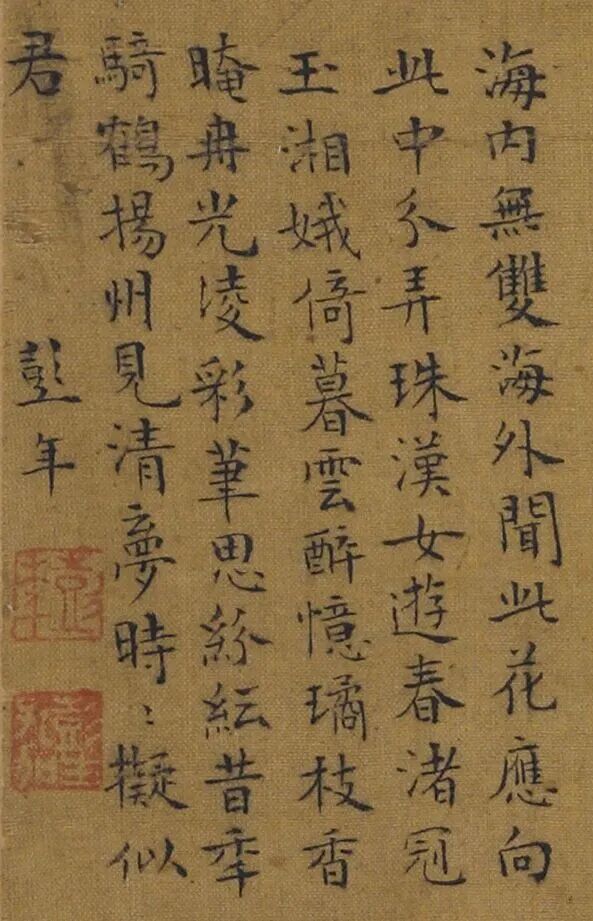 海内無雙海外聞此花應向
此中分弄珠漢女遊春渚冠
玉湘娥倚暮雲醉憶璚枝香
晻冉光凌彩筆思紛紜昔秊
騎鶴揚州見清夢時〻擬似
君 彭年